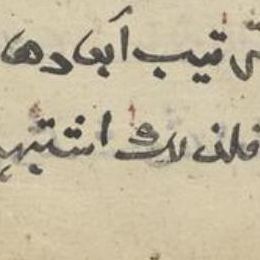 ترتيب أبعادها
فلذلك اشتبه